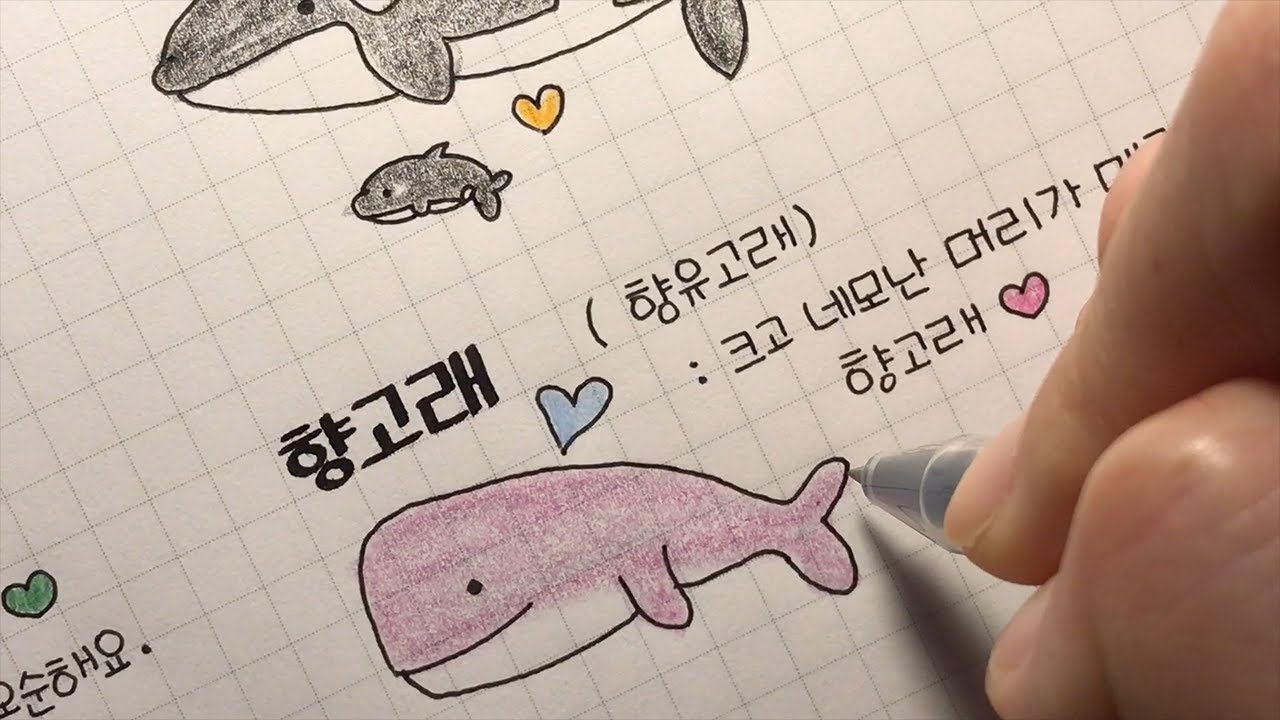 (향유고래)
: 크고 네모난 머리가
향고래
향고래
온순해요.